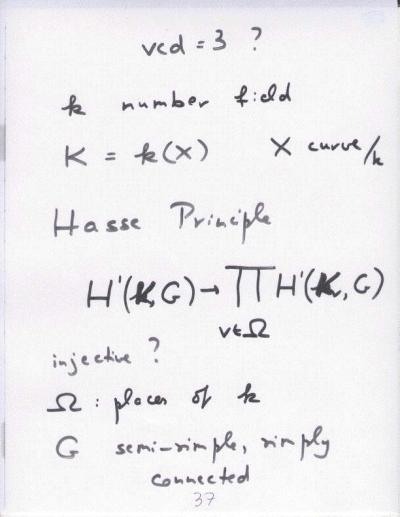 vcd = 3 ?
k number field
K = k(X) X curve/k
Hasse Principle
H'(K,G) → ∏ H'(K,G)
v∈Ω
injective ?
Ω : places of k
G semi-simple, simply
connected
37